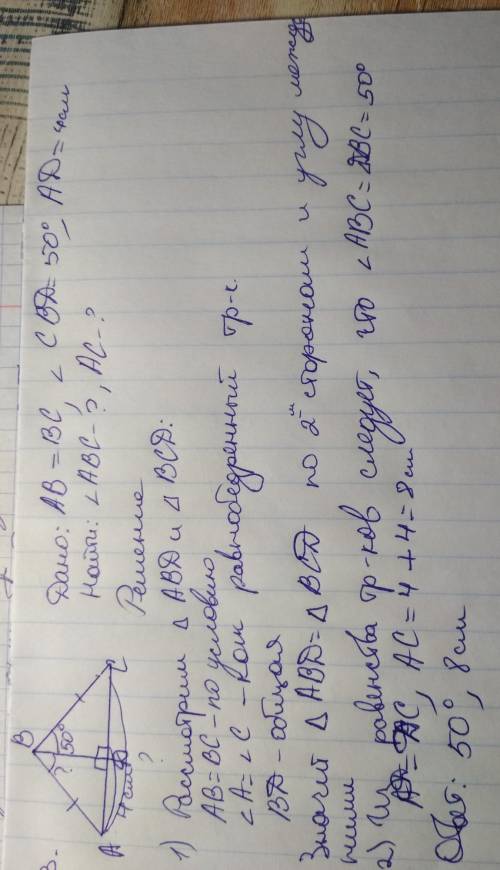 3.
B
? 50°
A 4см D C
?
Дано: AB = BC, ∠ CBD = 50°, AD = 4см
Найти: ∠ABC - ?, AC - ?
Решение
1) Рассмотрим △ ABD и △ BCD:
AB = BC - по условию
∠A = ∠C - как равнобедренный тр-к.
BD - общая
Значит △ ABD = △ BCD по 2м сторонам и углу между
ними
2) Из равенства тр-ков следует, что ∠ABC = DBC = 50°
AD = DC, AC = 4 + 4 = 8см
Ответ: 50°, 8см